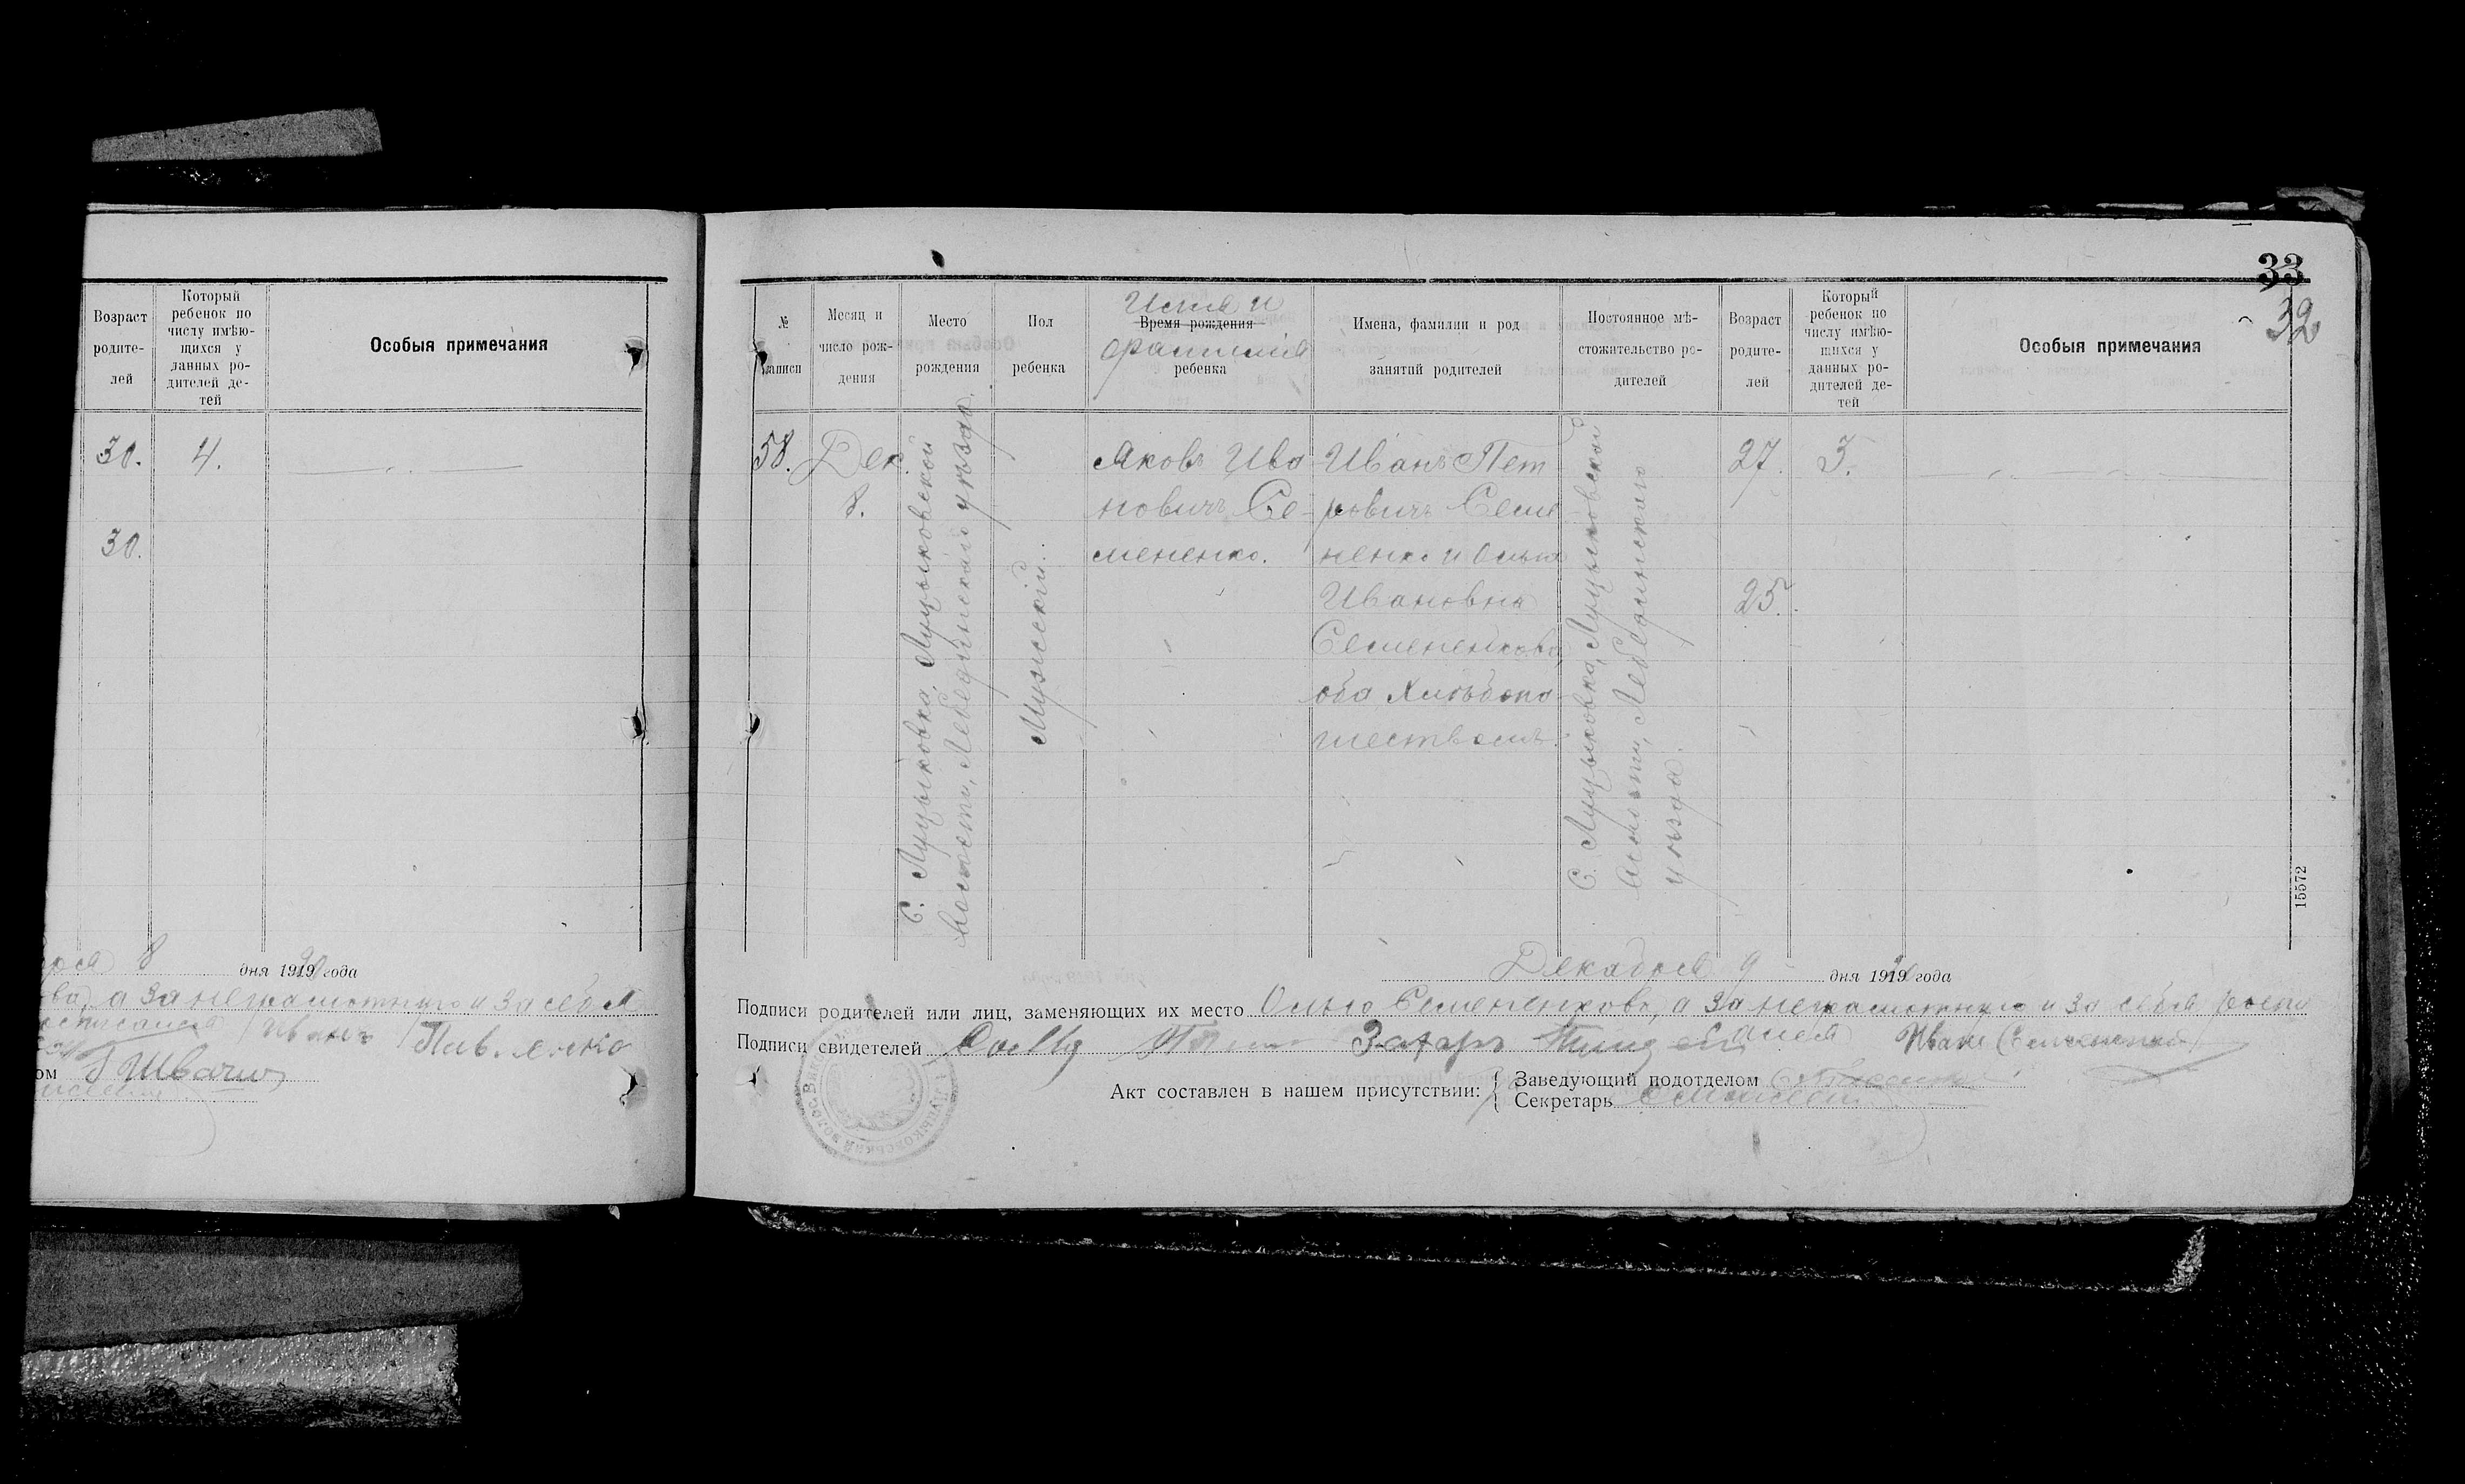 Возраст
родите-
лей
Который
ребенок по
числу имѣю-
щихся у
данных ро-
дителей де-
тей
Особыя примечания
30.
4.
30.
8 дня 1919 20 года
а за неграмотную и за себя
Иванъ Пав
33
32
№
записи
Месяц и
число рож-
дения
Место
рождения
Пол
ребенка
Имя и
Время рождения
фамилия
ребенка
Имена, фамилии и род
занятий родителей
Постоянное мѣ-
стожительство ро-
дителей
Возраст
родите-
лей
Который
ребенок по
числу имѣю-
щихся у
данных ро-
дителей де-
тей
Особыя примечания
58.
Дек.
8.
С. Луциковка, Луциковской
волости, Лебединскаго уѣзда.
Мужескій.
Яковъ Ива
новичъ Се-
мененко.
Иванъ Пет
ровичъ Семе
ненко и Ольга
Ивановна
Семененкова,
оба Хлѣбопа
шествомъ.
С. Луциковка, Луциковской
волости, Лебединскаго
уѣзда.
27.
25.
3.
15572
Декабря 9 дня 1919 года
Подписи родителей или лиц, заменяющих их место Семененкова, а за неграмотную и за себя
Подписи свидетелей Захаръ Иван Семененко
Акт составлен в нашем присутствии:
Заведующий подотделом
Секретарь